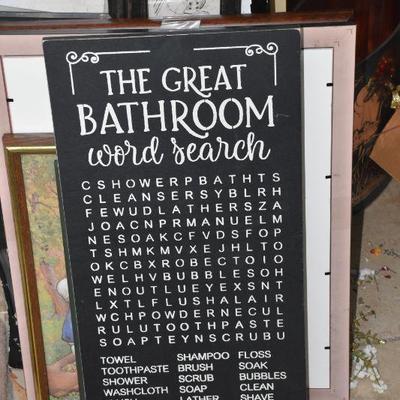 THE GREAT
BATHROOM
word search
CSHOWERPBATHTS
CLEANSERSYBLRH
FEWUDLATHERSZA
JOACNPRMANUELM
NESOAKCFVDSFOP
TSHMKMVXEJHLTO
OKCBXROBECTOIO
WELHVBUBBLESOH
ENOUTLUEYEXSNT
LXTLFLUSHALAIR
WCHPOWDERNECUL
RULUTOOTHPASTE
SOAPTEYNSCRUBU
TOWEL SHAMPOO FLOSS
TOOTHPASTE BRUSH SOAK
SHOWER SCRUB BUBBLES
WASHCLOTH SOAP CLEAN
LATHER SHAVE